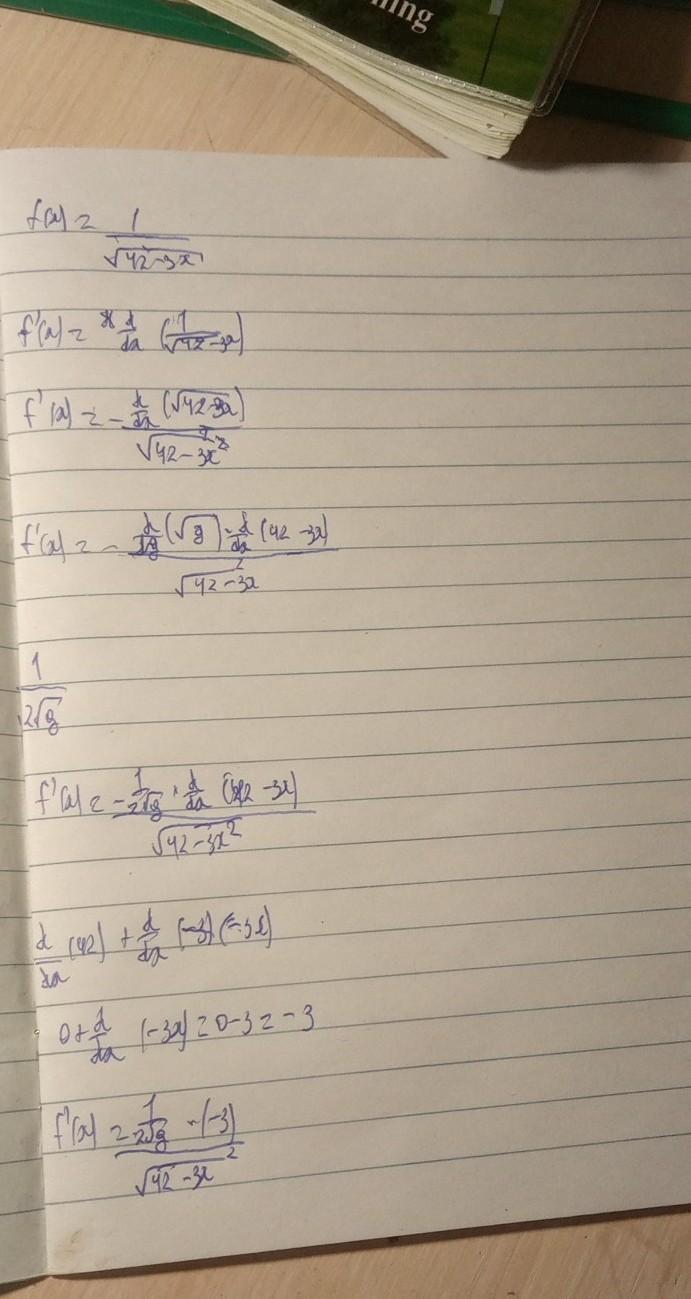 ning
f(x) = 1/√(42-3x)
f'(x) = d/dx (1/√(42-3x))
f'(x) = - d/dx (√(42-3x)) / √(42-3x)²
f'(x) = - d/dg (√g) · d/dx (42-3x) / √(42-3x)²
1/(2√g)
f'(x) = - 1/(2√g) · d/dx (42-3x) / √(42-3x²)
d/dx (42) + d/dx (-3x)
0 + d/dx (-3x) = 0-3 = -3
f'(x) = 1/(2√g) · (-3) / √(42-3x)²